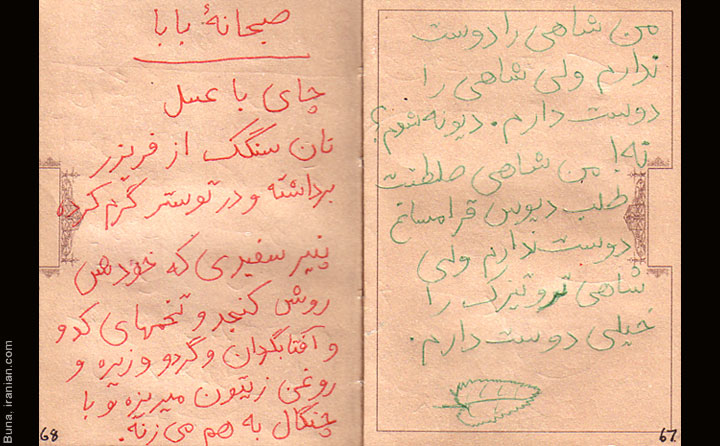 من شاهی را دوست
ندارم ولی شاهی را
دوست دارم. دیونه شوم؟
نه! من شاهی صلطنت
طلب دیوس قرامساتم
دوست ندارم ولی
شاهی تروتیزک را
خیلی دوست دارم.
67
صبحانهٔ بابا
چای با عسل
نان سنگک از فریزر
برداشته و در توستر گرم کرده
پنیر سفیدی که خودش
روش کنجد و تخمهای کدو
و آفتابگردان و گردو و زیره و
روغن زیتون میریزه و با
چنگال به هم می زنه.
68
Buna, iranian.com